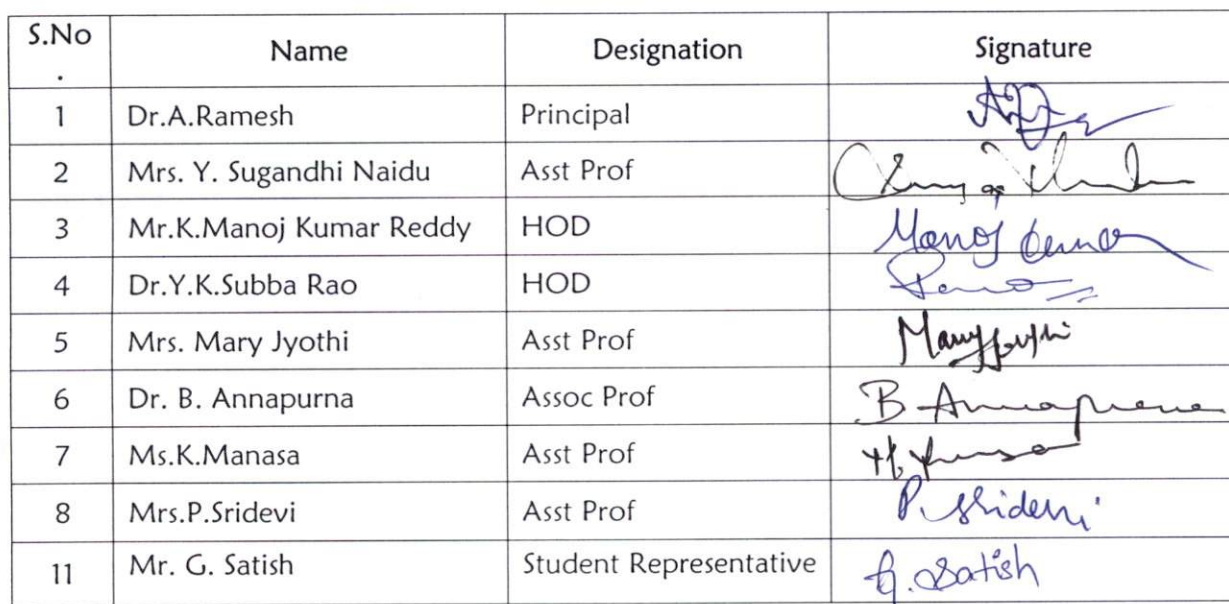 S.No Name Designation Signature
.
1 Dr.A.Ramesh Principal
2 Mrs. Y. Sugandhi Naidu Asst Prof
3 Mr.K.Manoj Kumar Reddy HOD Manoj Kumar
4 Dr.Y.K.Subba Rao HOD
5 Mrs. Mary Jyothi Asst Prof Mary Jyothi
6 Dr. B. Annapurna Assoc Prof B. Annapurna
7 Ms.K.Manasa Asst Prof
8 Mrs.P.Sridevi Asst Prof P. Sridevi
11 Mr. G. Satish Student Representative G. Satish